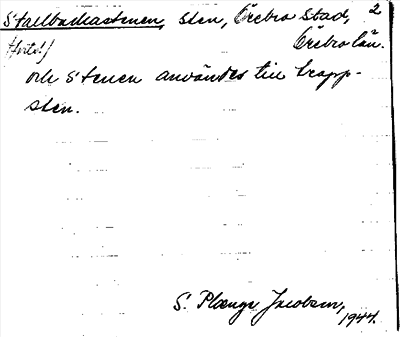 Stallbackastenen, sten, Örebro Stad, 2
(forts.) Örebro län.
och stenen användes till trapp-
sten.
S. Plænge Jacobson,
1944.